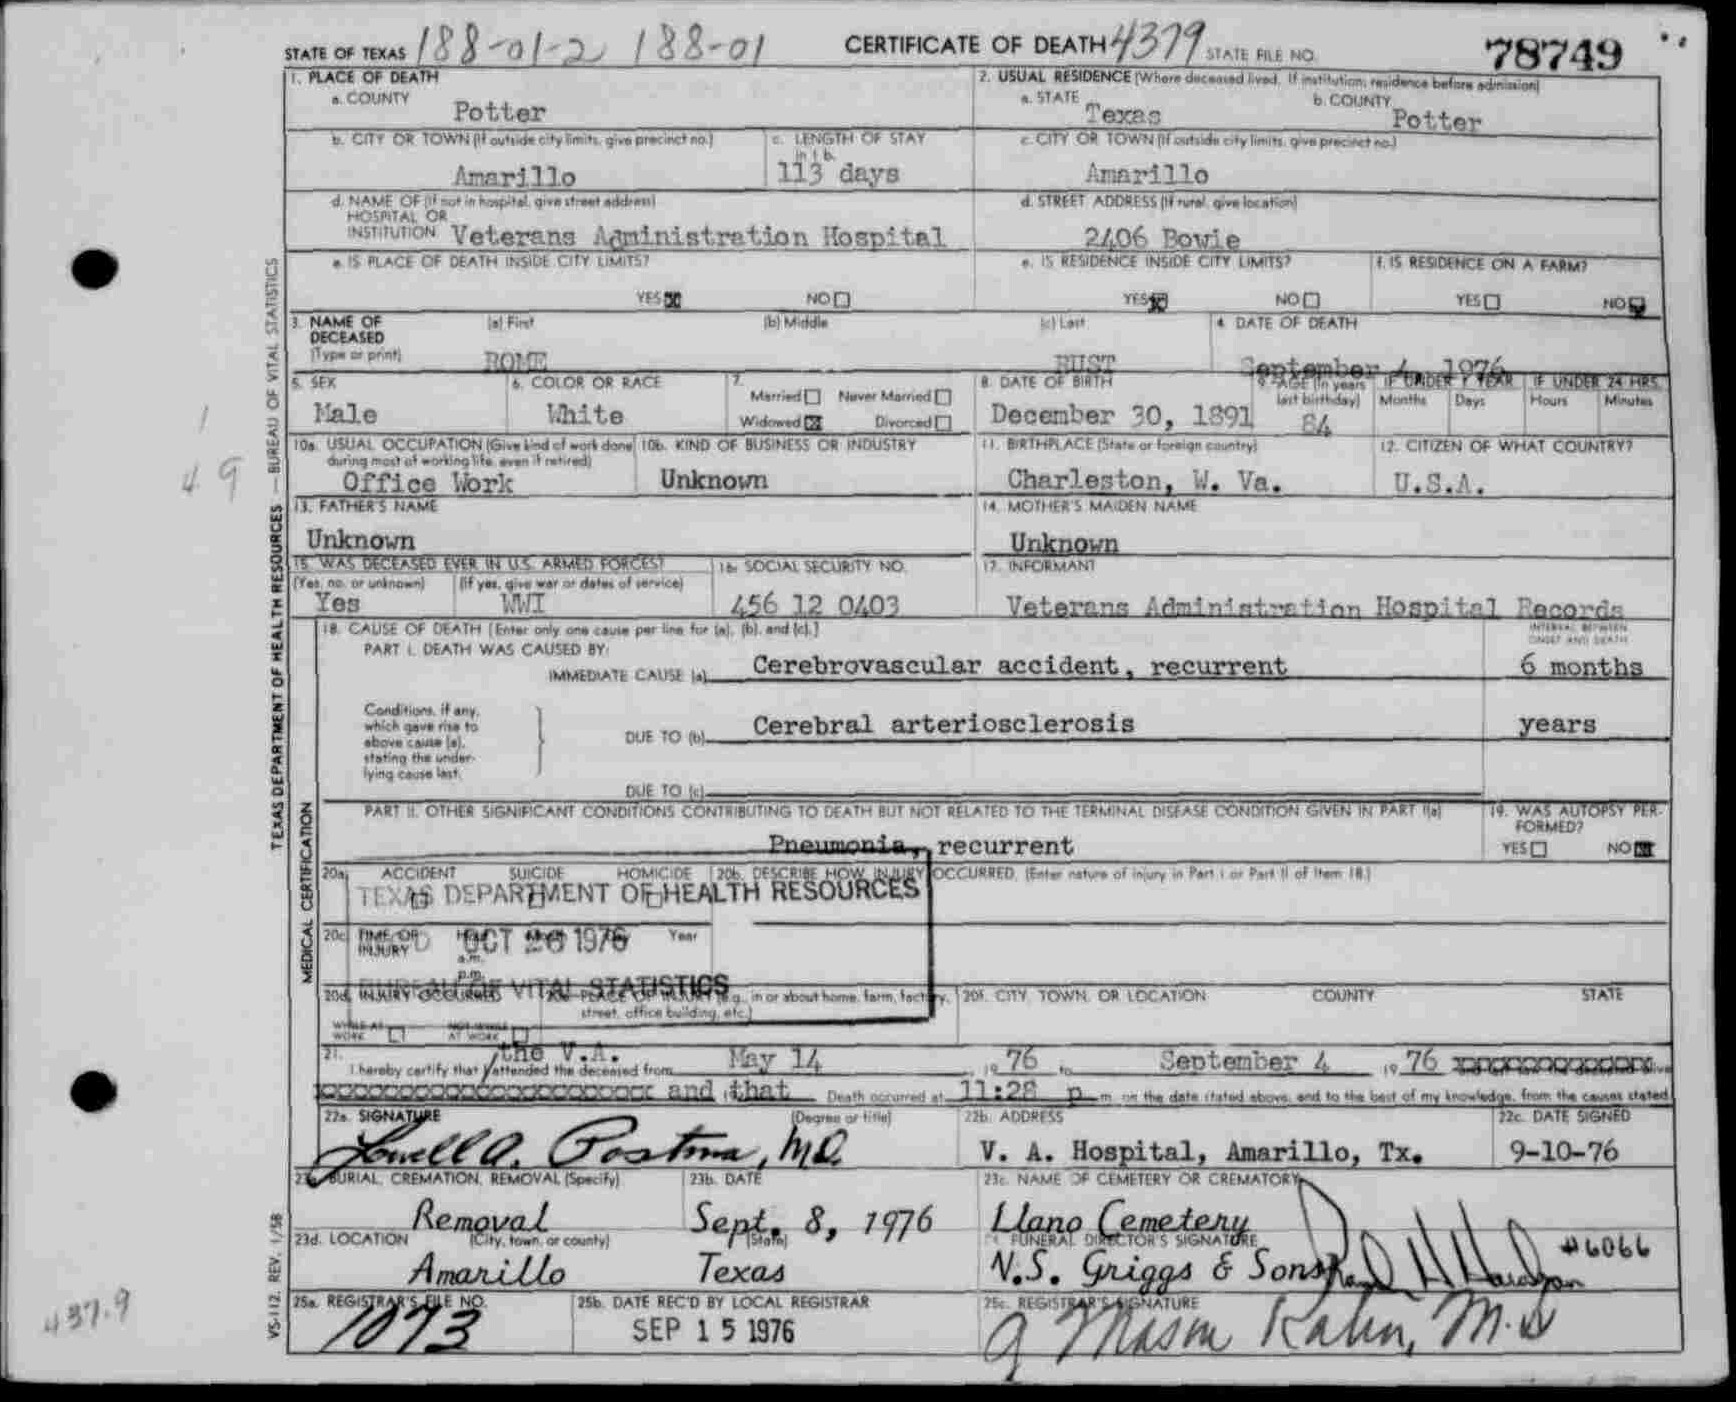 STATE OF TEXAS 188-01-2 188-01 CERTIFICATE OF DEATH 4379 STATE FILE NO. 78749
1. PLACE OF DEATH
a. COUNTY
Potter
2. USUAL RESIDENCE (Where deceased lived. If institution: residence before admission)
a. STATE Texas b. COUNTY Potter
b. CITY OR TOWN (If outside city limits, give precinct no.)
Amarillo
c. LENGTH OF STAY
in 1 b.
113 days
c. CITY OR TOWN (If outside city limits, give precinct no.)
Amarillo
d. NAME OF (If not in hospital, give street address)
HOSPITAL OR
INSTITUTION Veterans Administration Hospital
d. STREET ADDRESS (If rural, give location)
2406 Bowie
e. IS PLACE OF DEATH INSIDE CITY LIMITS?
YES NO
e. IS RESIDENCE INSIDE CITY LIMITS?
YES NO
f. IS RESIDENCE ON A FARM?
YES NO
3. NAME OF DECEASED
(Type or print)
(a) First (b) Middle (c) Last
ROME RUST
4. DATE OF DEATH
September 4, 1976
5. SEX
Male
6. COLOR OR RACE
White
7.
Married Never Married
Widowed Divorced
8. DATE OF BIRTH
December 30, 1891
9. AGE (In years last birthday)
84
IF UNDER 1 YEAR
Months Days
IF UNDER 24 HRS.
Hours Minutes
10a. USUAL OCCUPATION (Give kind of work done
during most of working life, even if retired)
Office Work
10b. KIND OF BUSINESS OR INDUSTRY
Unknown
11. BIRTHPLACE (State or foreign country)
Charleston, W. Va.
12. CITIZEN OF WHAT COUNTRY?
U.S.A.
13. FATHER'S NAME
Unknown
14. MOTHER'S MAIDEN NAME
Unknown
15. WAS DECEASED EVER IN U.S. ARMED FORCES?
(Yes, no, or unknown) (If yes, give war or dates of service)
Yes WWI
16. SOCIAL SECURITY NO.
456 12 0403
17. INFORMANT
Veterans Administration Hospital Records
18. CAUSE OF DEATH [Enter only one cause per line for (a), (b), and (c).]
INTERVAL BETWEEN
ONSET AND DEATH
PART I. DEATH WAS CAUSED BY:
IMMEDIATE CAUSE (a) Cerebrovascular accident, recurrent 6 months
Conditions, if any,
which gave rise to
above cause (a),
stating the under-
lying cause last.
DUE TO (b) Cerebral arteriosclerosis years
DUE TO (c)
PART II. OTHER SIGNIFICANT CONDITIONS CONTRIBUTING TO DEATH BUT NOT RELATED TO THE TERMINAL DISEASE CONDITION GIVEN IN PART I(a)
Pneumonia, recurrent
19. WAS AUTOPSY PER-
FORMED?
YES NO
20a. ACCIDENT SUICIDE HOMICIDE
20b. DESCRIBE HOW INJURY OCCURRED. (Enter nature of injury in Part I or Part II of Item 18.)
TEXAS DEPARTMENT OF HEALTH RESOURCES
20c. TIME OF
INJURY
a.m.
p.m.
Year
OCT 20 1976
BUREAU OF VITAL STATISTICS
20d. INJURY OCCURRED
WHILE AT
WORK
NOT WHILE
AT WORK
PLACE OF INJURY (e.g., in or about home, farm, factory,
street, office building, etc.)
20f. CITY, TOWN, OR LOCATION COUNTY STATE
21. the V.A.
I hereby certify that attended the deceased from May 14, 1976 to September 4, 1976
and that Death occurred at 11:28 p m. on the date stated above, and to the best of my knowledge, from the causes stated.
22a. SIGNATURE (Degree or title)
Lowell A. Postma, MD.
22b. ADDRESS
V. A. Hospital, Amarillo, Tx.
22c. DATE SIGNED
9-10-76
23a. BURIAL, CREMATION, REMOVAL (Specify)
Removal
23b. DATE
Sept. 8, 1976
23c. NAME OF CEMETERY OR CREMATORY
Llano Cemetery
23d. LOCATION (City, town, or county) (State)
Amarillo Texas
24. FUNERAL DIRECTOR'S SIGNATURE
N.S. Griggs & Sons #6066
25a. REGISTRAR'S FILE NO.
1073
25b. DATE REC'D BY LOCAL REGISTRAR
SEP 15 1976
25c. REGISTRAR'S SIGNATURE
J Mason Kahn, M.D
TEXAS DEPARTMENT OF HEALTH RESOURCES — BUREAU OF VITAL STATISTICS
MEDICAL CERTIFICATION
VS-112, REV. 1/58
1
49
437.9